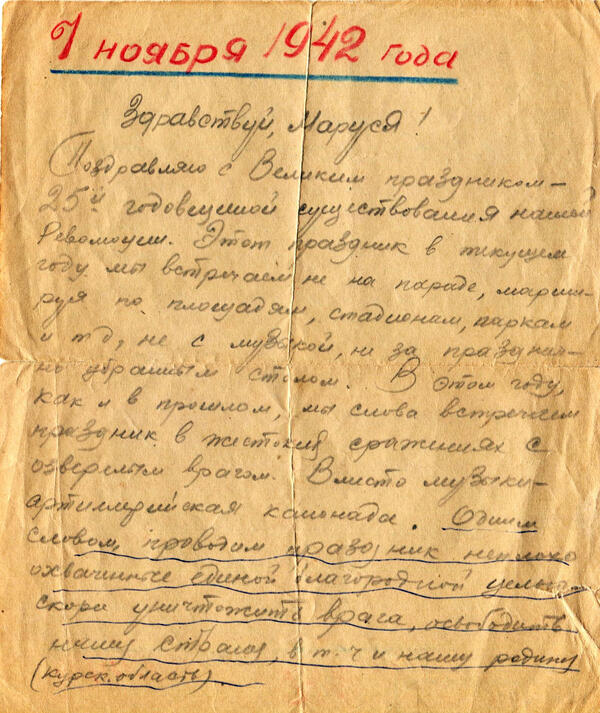 7 ноября 1942 года
Здравствуй, Маруся!
Поздравляю с Великим праздником –
25й годовщиной существования нашей
Революции. Этот праздник в текущем
году мы встречаем не на параде, марши-
руя по площадям, стадионам, паркам
и т д, не с музыкой, ни за празднич-
но убранным столом. В этом году,
как и в прошлом, мы снова встречаем
праздник в жестоких сражениях с
озверелым врагом. Вместо музыки –
артиллерийская канонада. Одним
словом, проводим праздник неплохо
охваченные единой благородной целью
скорей уничтожить врага, освободить
нашу страну, в т. ч и нашу родину
(Курск. область).